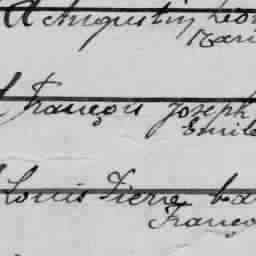 Augustin Léon
Mari
François Joseph
Emile
Louis Pierre
Franço